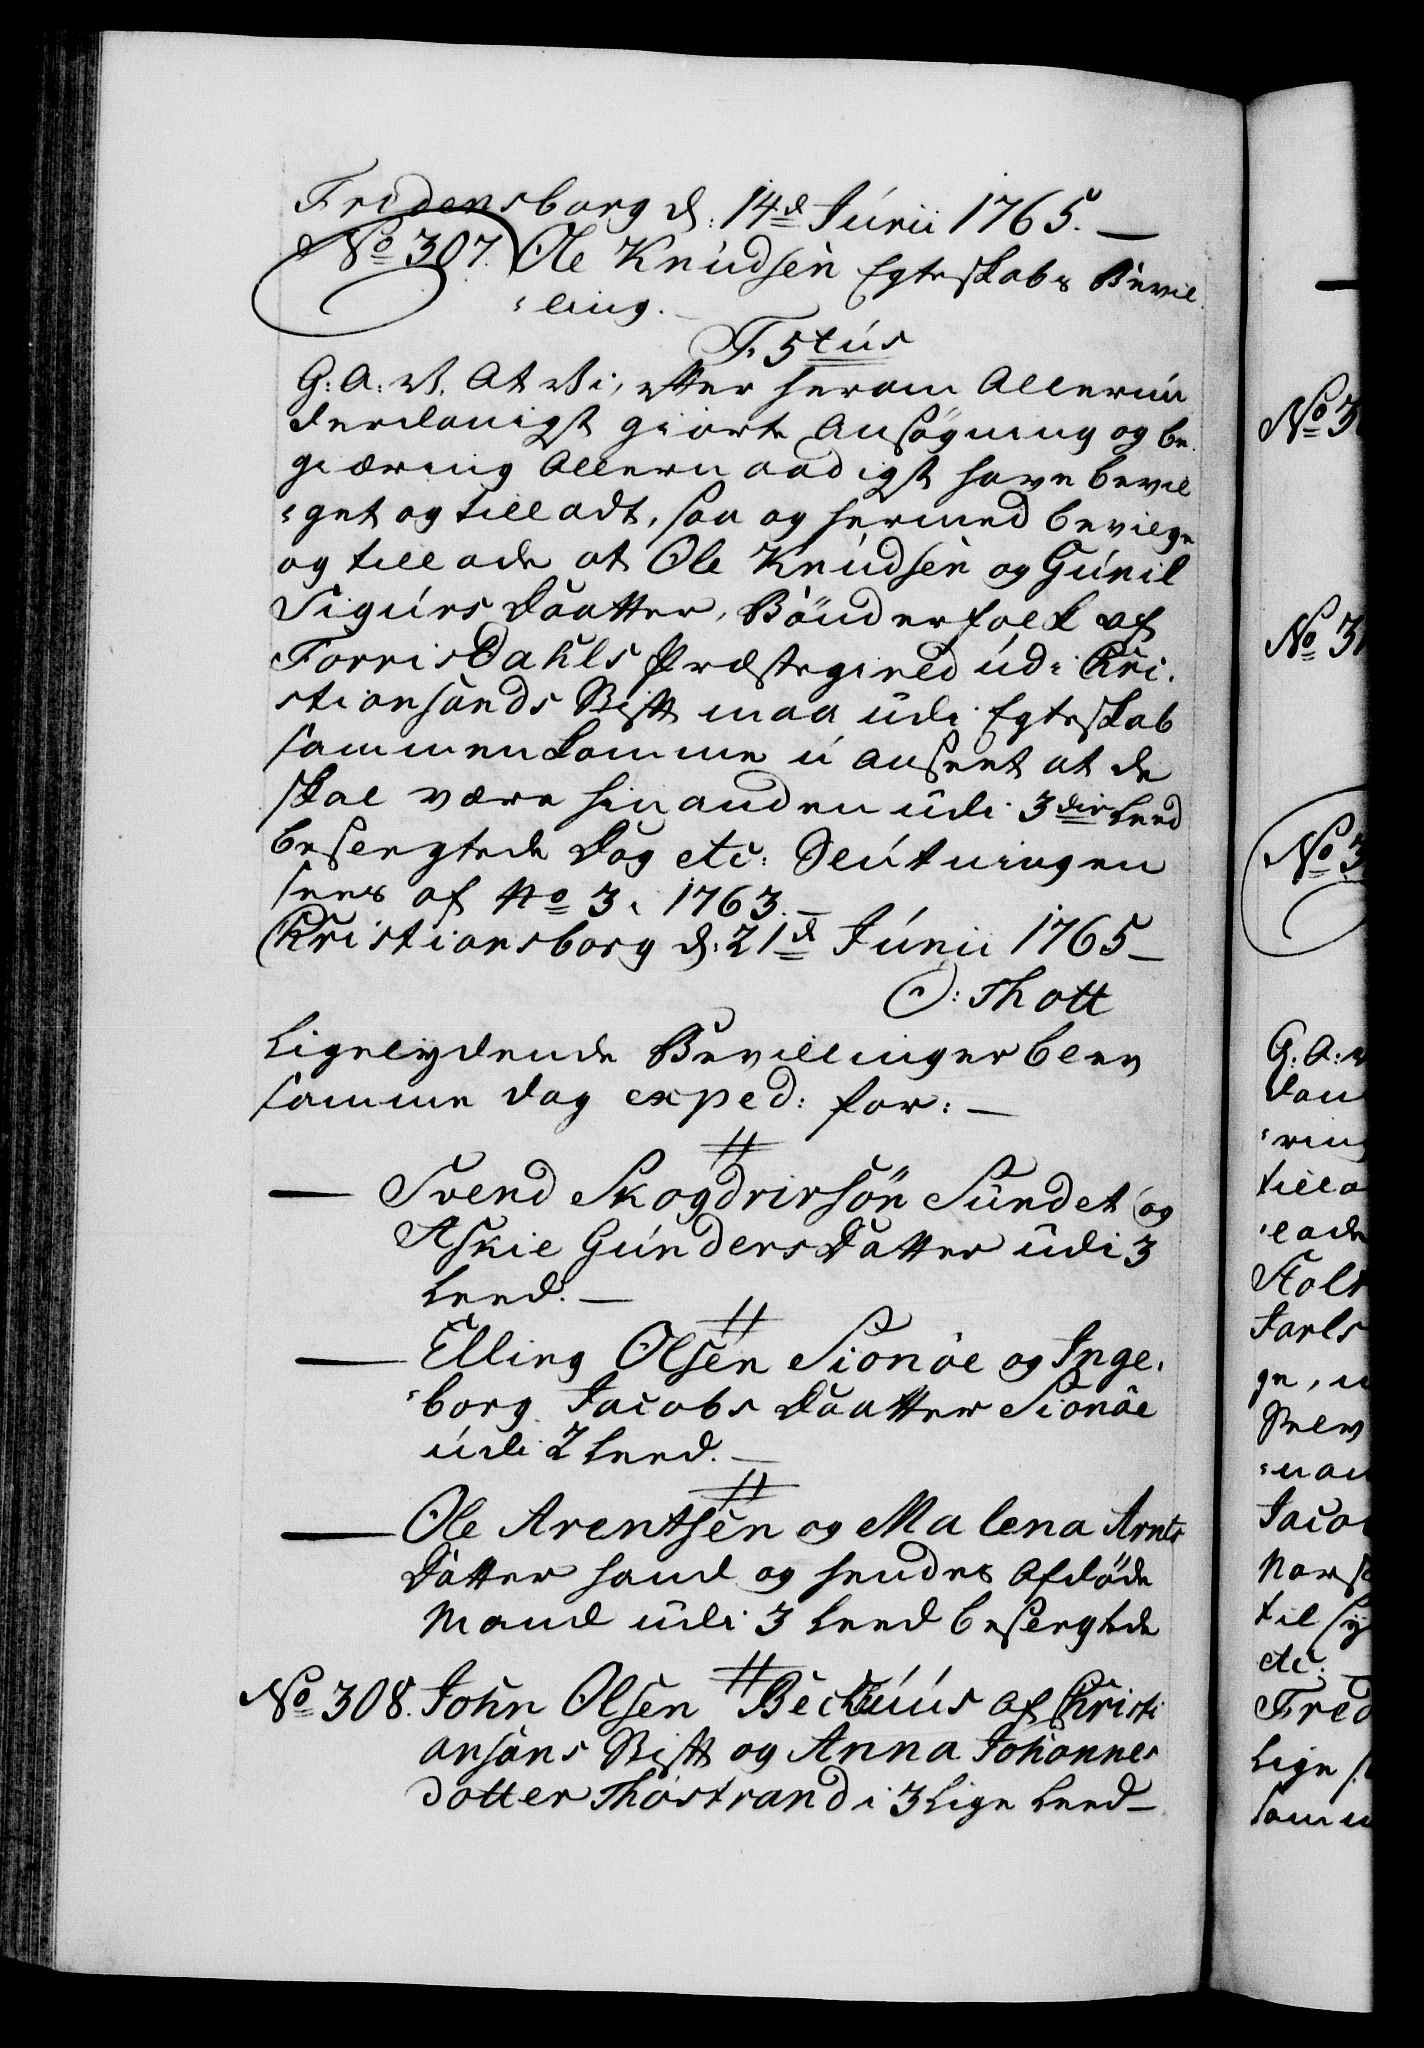 Fridensborg d: 14d Junii 1765. —
No 307. Ole Knudsen Egteskabs Bevil
-ling. —
F. 5tus
G: A: V. At Vi, efter herom Allerun
derdanigst giorte Ansøgning og be
giæring Allernaadigst have bevil
-get og tilladt, saa og hermed bevilge
og tillade at Ole Knudsen og Gunil
Sigurs Daatter, Bönderfolk af
Forrisdahls Præstegield udi Chri-
stiansands Stift maa udi Egteskab
sammenkomme u anseet at de
skal være hinanden udi 3die Leed
beslegtede Dog etc: Slutningen
sees af No 3. 1763. —
Christiansborg d: 21d Junii 1765 —
O: Thott
Ligelydende Bevillinger blev
samme dag exped: for: —
— Svend Skogdrirsön Sundet og
Askie Gunders Datter udi 3
Leed. —
— Elling Olsen Sionöe og Inge-
-borg Jacobs Daatter Sionöe
udi 2 Leed. —
— Ole Arentsen og Malena Arnts
Datter hand og hendes afdøde
Mand udi 3 Leed beslegtede
No 308. John Olsen Beckuus af Christi
ansans Stift og Anna Johannes
dotter Thostrand i 3 Lige Leed —